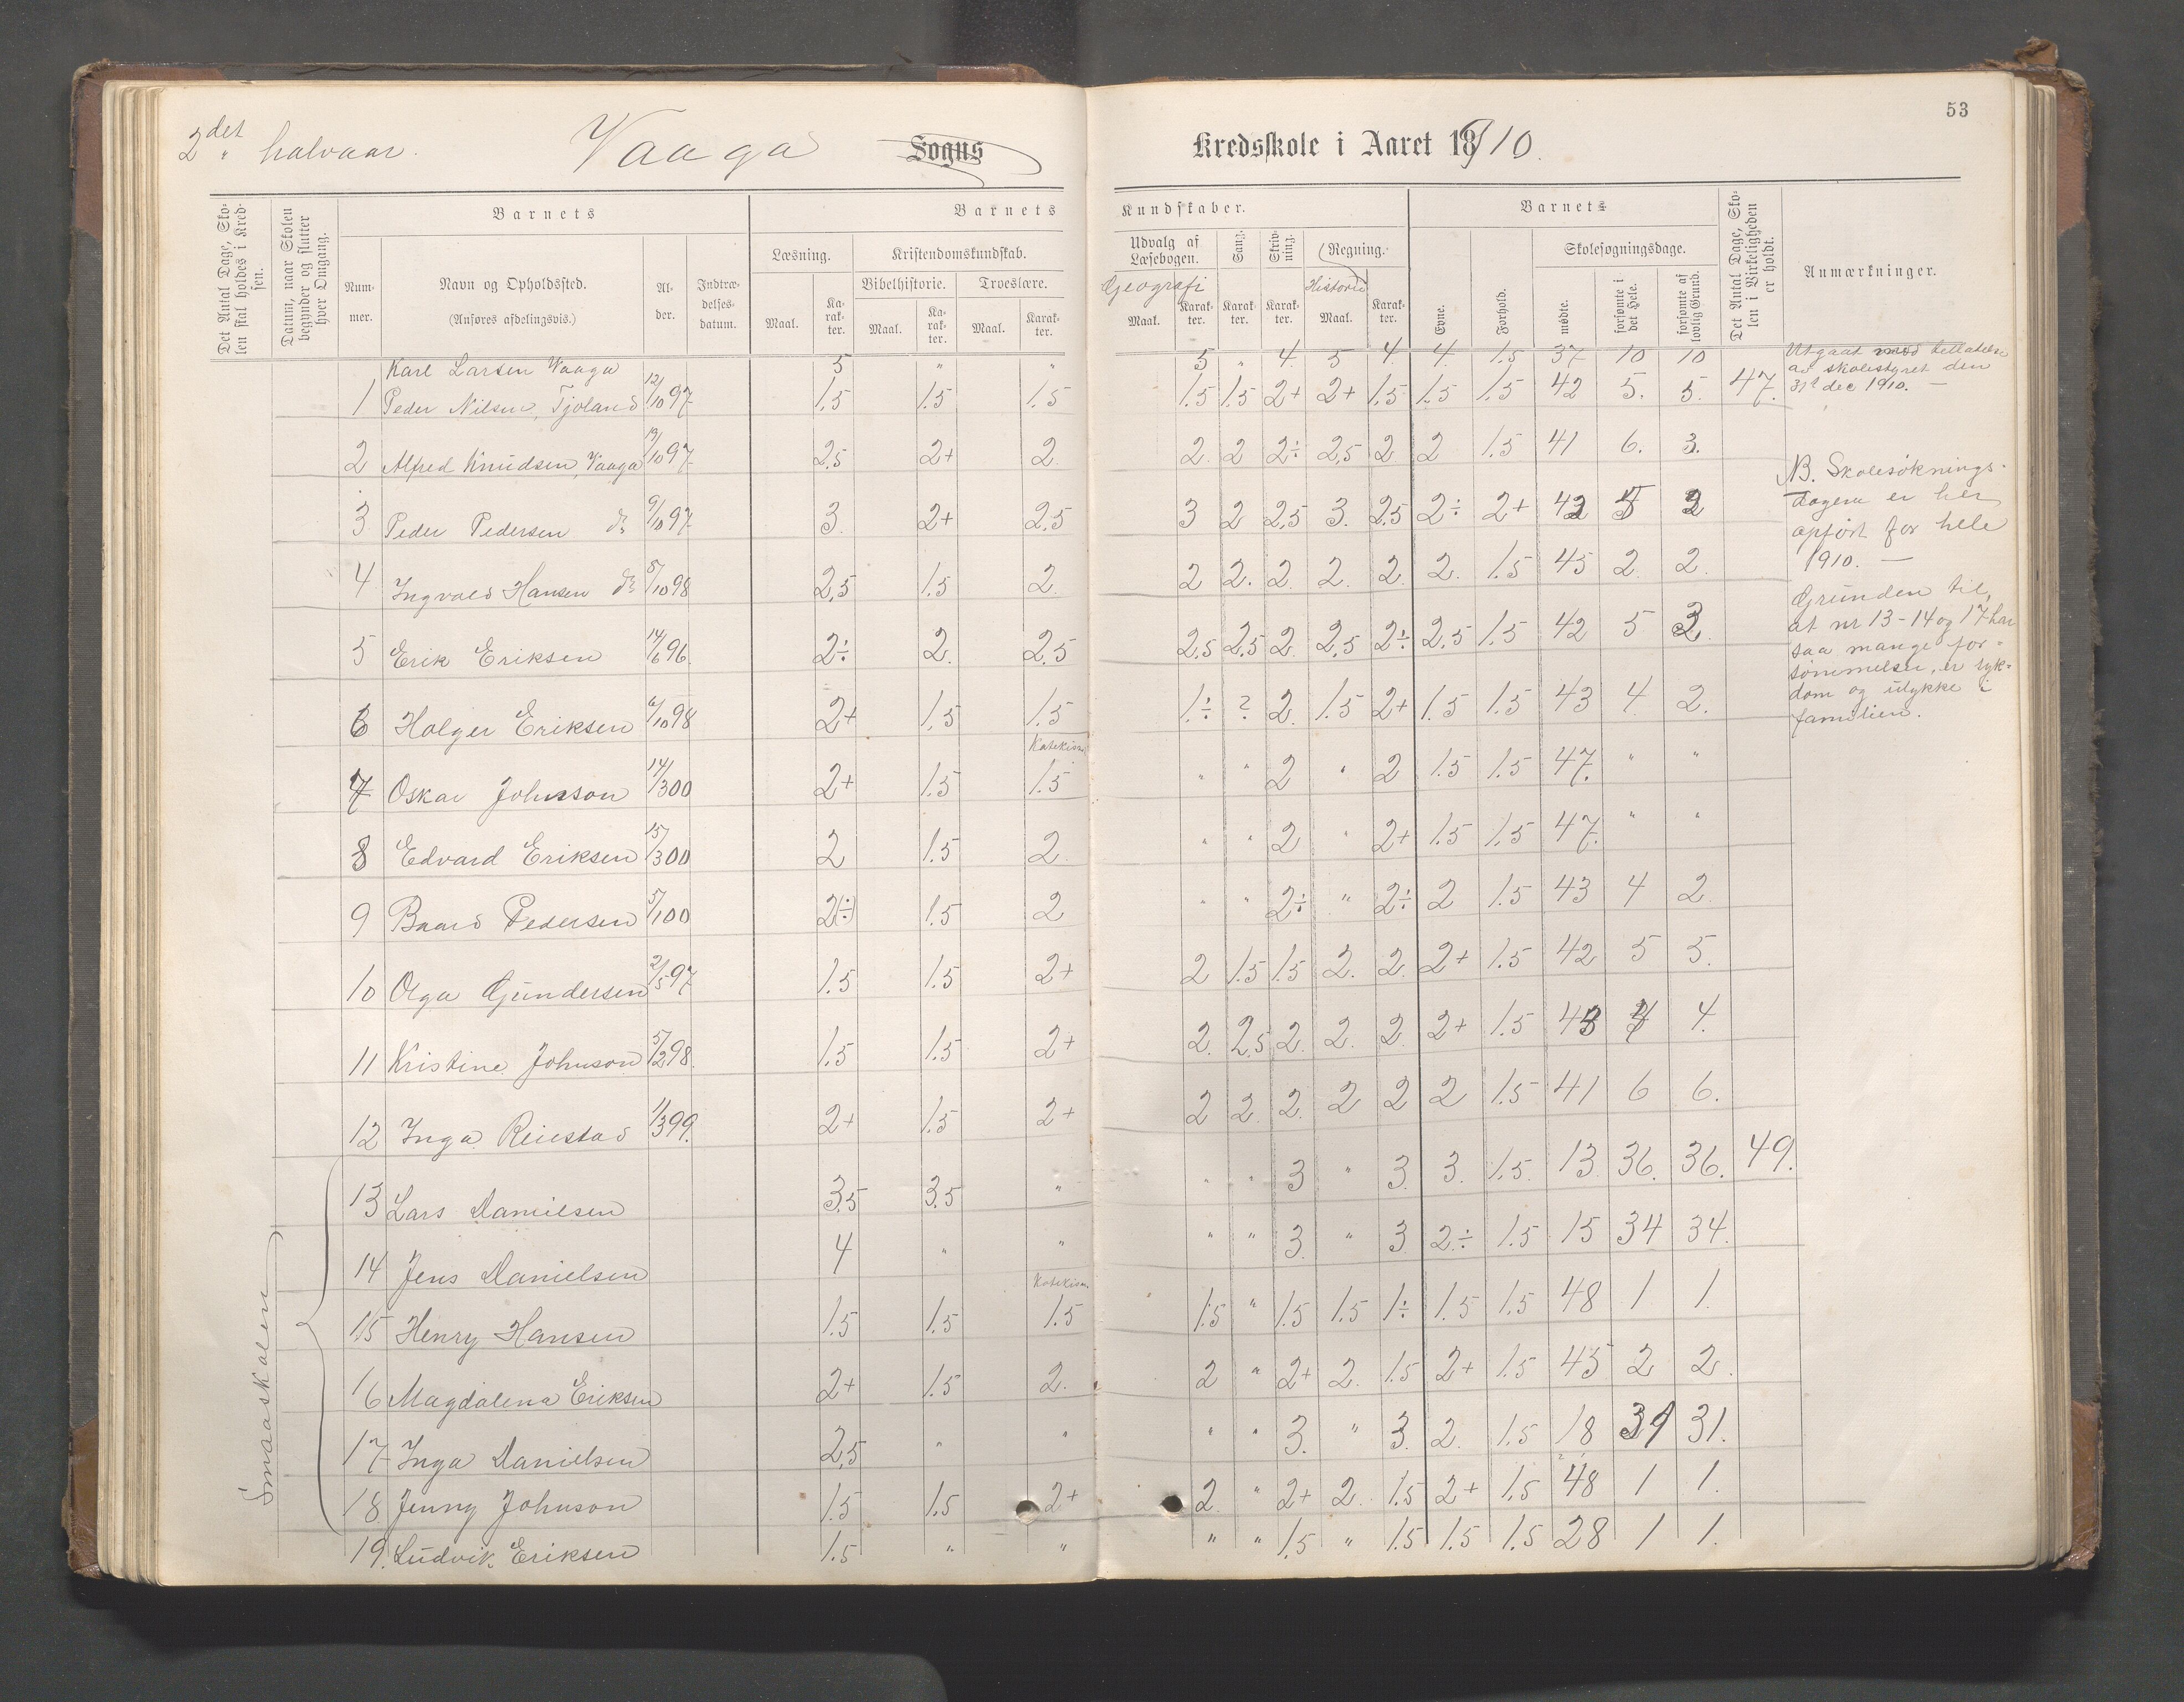 53
2det halvaar. Vaaga Sogns Kredsskole i Aaret 1910.
Det Antal Dage, Skolen skal holdes i Kredsen.
Datum, naar Skolen begynder og slutter hver Omgang.
Barnets
Nummer.
Navn og Opholdssted.
(Anføres afdelingsvis.)
Alder.
Indtrædelsesdatum.
Barnets Kundskaber.
Læsning.
Maal. Karakter.
Kristendomskundskab.
Bibelhistorie. Troeslære.
Maal. Karakter. Maal. Karakter.
Udvalg af Læsebogen.
Geografi
Maal. Karakter.
Sang. Karakter.
Skrivning. Karakter.
Regning.
Historie
Maal. Karakter.
Barnets
Evne. Forhold.
Skolesøgningsdage.
mødte. forsømte i det Hele. forsømte af lovlig Grund.
Det Antal Dage, Skolen i Virkeligheden er holdt.
Anmærkninger.
Karl Larsen Vaaga 5 " " 5 " 4. 5 4. 4. 1.5 37 10 10
1 Peder Nilsen, Tjoland 12/10 97 1.5 1.5 1.5 1.5 1.5 2+ 2+ 1.5 1.5 1.5 42 5. 5. 47.
2 Alfred Knudsen, Vaaga 19/10 97 2.5 2+ 2 2. 2 2÷ 2,5 2 2 1.5 41 6. 3.
3 Peder Pedersen do 9/10 97 3. 2+ 2,5 3 2 2,5 3. 2,5 2÷ 2+ 42 5 2
4 Ingvald Hansen do 5/10 98 2,5 1.5 2. 2 2. 2. 2. 2. 2. 1.5 45 2 2.
5 Erik Eriksen 14/6 96. 2÷ 2. 2,5 2,5 2,5 2. 2,5 2÷ 2,5 1.5 42 5 3.
6 Holger Eriksen 6/10 98 2+ 1.5 1.5 1÷ ? 2. 1.5 2+ 1.5 1.5 43 4 2.
Katekism.
7 Oskar Johnson 14/3 00 2+ 1.5 1.5 " " 2 " 2 1.5 1.5 47. " "
8 Edvard Eriksen 15/3 00 2 1.5 2. " " 2 " 2+ 1.5 1.5 47. " "
9 Baard Pedersen 5/1 00 2(÷) 1.5 2 " " 2÷ " 2÷ 2 1.5 43 4 2.
10 Olga Gundersen 2/5 97 1.5 1.5 2+ 2 1.5 1.5 2. 2. 2+ 1.5 42 5 5.
11 Kristine Johnson 5/2 98. 1.5 1.5 2+ 2. 2,5 2. 2. 2. 2+ 1.5 43 4 4.
12 Inga Reiestad 1/3 99. 2+ 1.5 2+ 2 2 2. 2 2 2 1.5 41 6 6.
13 Lars Danielsen 3,5 3.5 " " " 3 " 3. 3. 1.5. 13 36. 36. 49.
14 Jens Danielsen 4 " " " " 3. " 3 2÷ 1.5 15 34 34.
Katekism.
15 Henry Hansen 1.5 1.5 1.5 1.5 " 1.5 1.5 1÷ 1.5 1.5 48 1 1.
16 Magdalena Eriksen 2+ 1.5 2. 2 " 2+ 2. 1.5 2+ 1.5 45 2 2.
17 Inga Danielsen 2,5 " " " " 3. " 3. 2. 1.5 18 31 31.
18 Jenny Johnson 1.5 1.5 2+ 2. " 2+ 2. 1.5 2+ 1.5 48 1 1.
19. Ludvik Eriksen 1.5 " " " " 1.5 " 1.5 1.5 1.5 28 1 1.
Smaaskolen
Utgaat med tillatelse
av skolestyret den
31te dec 1910. —
NB. Skolesøknings-
dagene er her
opført for hele
1910. —
Grunden til,
at nr 13-14 og 17 har
saa mange for-
sømmelser, er syk-
dom og ulykke i
familien.